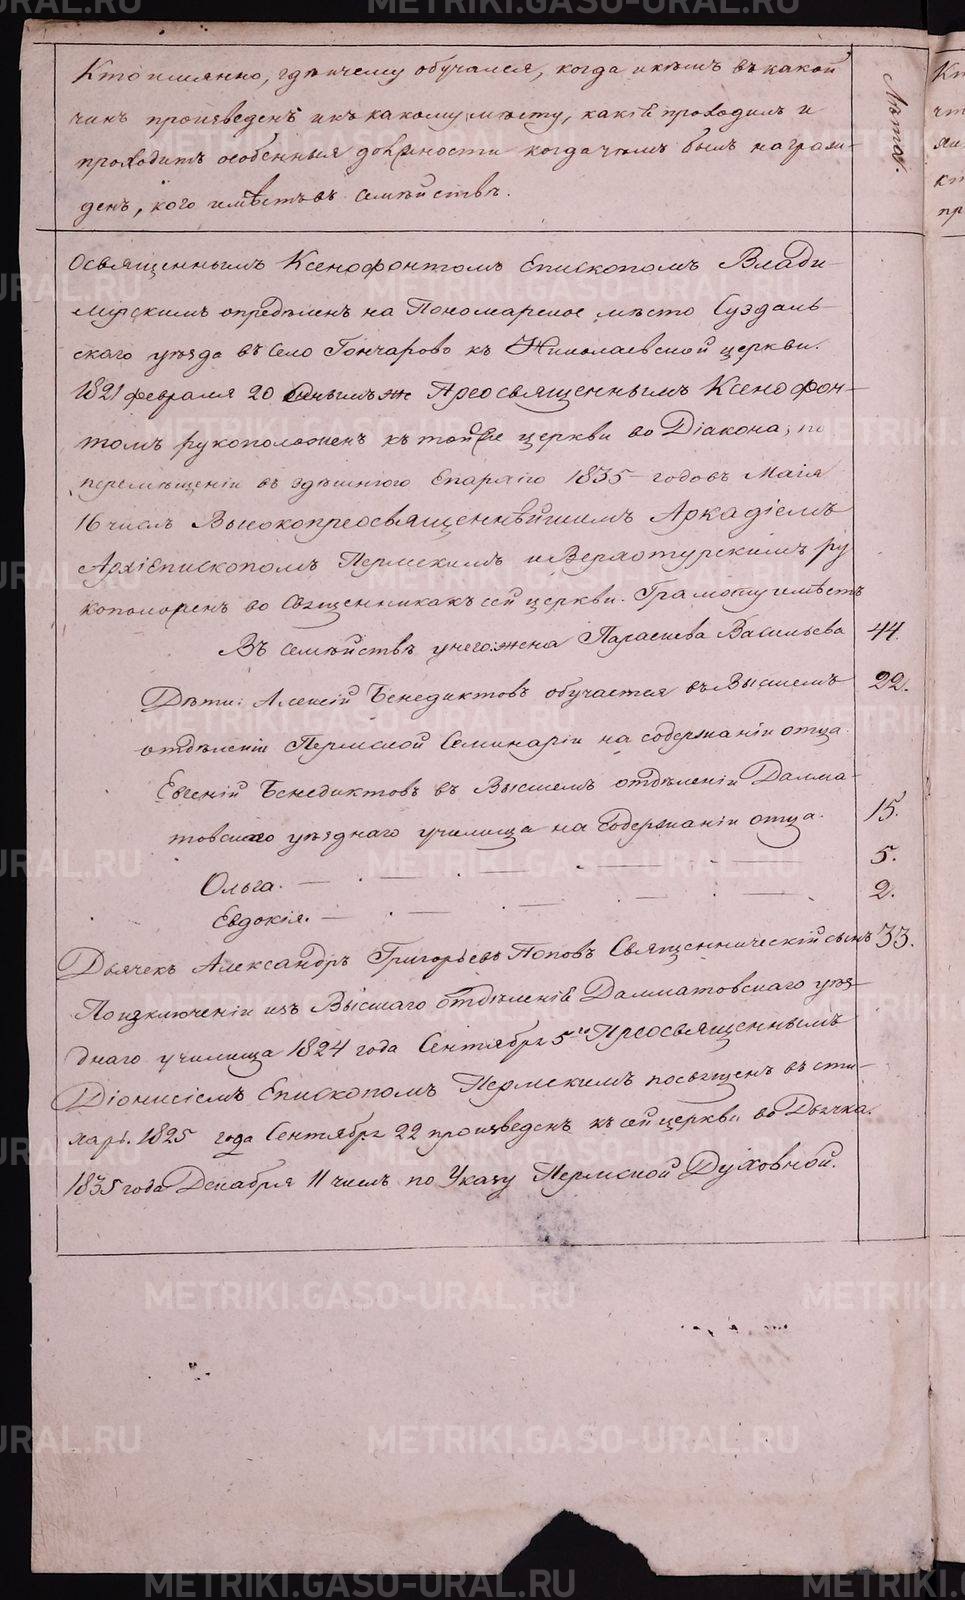 Кто имянно, гдѣ и чему обучался, когда и кѣмъ въ какой
чинъ произведенъ и къ какому мѣсту, какіе проходилъ и
проходитъ особенныя должности когда чѣмъ былъ награж-
денъ, кого имѣетъ въ семѣйствѣ.
Лѣта.
освященнымъ Ксенофонтомъ Епископомъ Влади-
мірскимъ опредѣленъ на Пономарское мѣсто Суздаль-
скаго уѣзда въ Село Гончарово къ Николаевской церкви.
1821 февраля 20 Симъ же Преосвященнымъ Ксенофон-
томъ рукоположенъ къ той же церкви во Діакона; по
перемѣщеніи въ здѣшнюю Епархію 1835 годовъ Маія
16 числъ Высокопреосвященнѣйшимъ Аркадіемъ
Архіепископомъ Пермскимъ и Верхотурскимъ ру
коположенъ во Священника къ сей церкви. Грамоту имѣетъ
Въ семѣйствѣ у него: жена Параскева Васильева 44.
Дѣти: Алексій Бенедиктовъ обучается въ Высшемъ 22.
отдѣленіи Пермской Семинаріи на содержаніи отца.
Евгеній Бенедиктовъ въ Высшемъ отдѣленіи Далма-
товскаго уѣзднаго училища на Содержаніи отца. 15.
Ольга. 5.
Евдокія. 2.
Дьячекъ Александръ Григорьевъ Поповъ Священническій сынъ 33.
По изключеніи изъ Высшаго отдѣленія Далматовскаго уѣз-
днаго училища 1824 года Сентября 5го Преосвященнымъ
Діонисіемъ Епископомъ Пермскимъ посвященъ въ сти-
харь. 1825 года Сентября 22 произведенъ къ сей церкви во Дьячка.
1835 года Декабря 11 числъ по Указу Пермской Духовной.
METRIKI.GASO-URAL.RU